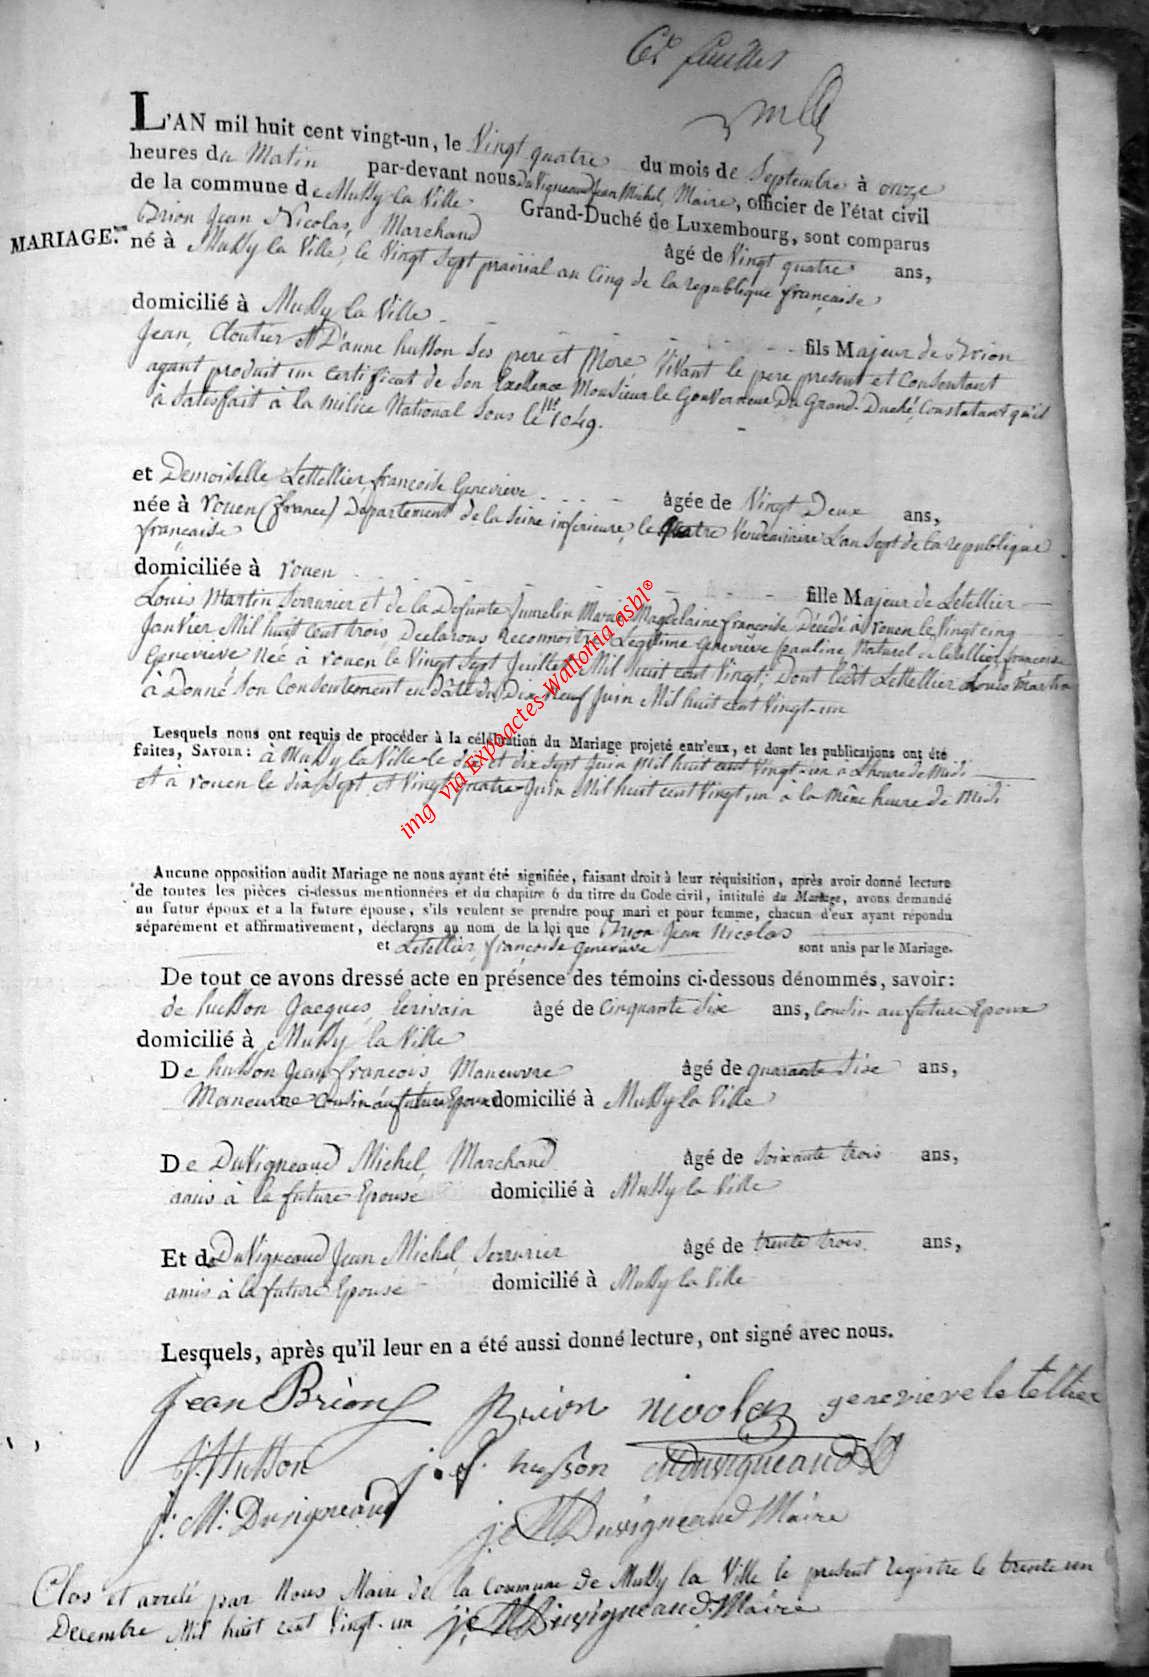 6e feuillet
L'AN mil huit cent vingt-un, le Vingt quatre du mois de Septembre à onze
heures du Matin par-devant nous DuVigneaud Jean Michel, Maire, officier de l'état civil
de la commune de Mussy la Ville Grand-Duché de Luxembourg, sont comparus
Brion Jean Nicolas, Marchand âgé de Vingt quatre ans,
MARIAGE.
né à Mussy la Ville, le Vingt Sept prairial an Cinq de la republique française
domicilié à Mussy la Ville
fils Majeur de Brion
Jean, Cloutier et D'anne husson Ses pere et Mere, Vivant le pere present et Consentant
ayant produit un certificat de Son Exellence Monsieur le Gouverneur Du Grand-Duché, Constatant qu'il
à Satisfait à la milice National Sous le N° 1049.
et Demoiselle Lettellier françoise Genevieve âgée de Vingt Deux ans,
née à rouen (france) Département de la Seine inferieure, le quatre Vendémiaire L'an Sept de la republique
française
domiciliée à rouen
fille Majeur de Letellier
Louis Martin Serrurier et de la Defunte Jumelin Marie Magdelaine françoise Décédé à rouen le Vingt cinq
Janvier Mil huit cent trois, Declarons reconnoitre Legitime Genevieve pauline Naturel a letellier françoise
Genevieve Née à rouen le Vingt Sept Juillet Mil huit cent Vingt; Dont ledit Lettellier Louis Martin
à Donné Son Consentement en Date du Dix Neuf Juin Mil huit cent Vingt-un
Lesquels nous ont requis de procéder à la célébration du Mariage projeté entr'eux, et dont les publications ont été
faites, SAVOIR : à Mussy la Ville le dix et dix Sept Juin Mil huit cent Vingt-un à L'heure de Midi
et à rouen le dix Sept et Vingt quatre Juin Mil huit cent Vingt un à la Même heure de Midi
Aucune opposition audit Mariage ne nous ayant été signifiée, faisant droit à leur réquisition, après avoir donné lecture
de toutes les pièces ci-dessus mentionnées et du chapitre 6 du titre du Code civil, intitulé du Mariage, avons demandé
au futur époux et a la future épouse, s'ils veulent se prendre pour mari et pour femme, chacun d'eux ayant répondu
séparément et affirmativement, déclarons au nom de la loi que Brion Jean Nicolas
et Letellier, françoise Genevieve sont unis par le Mariage.
De tout ce avons dressé acte en présence des témoins ci-dessous dénommés, savoir:
de husson Jacques, Ecrivain âgé de Cinquante Six ans, Cousin au future Epoux
domicilié à Mussy la Ville
De husson Jean françois Maneuvre âgé de quarante Six ans,
Maneuvre Cousin au future Epoux domicilié à Mussy la Ville
De DuVigneaud Michel, Marchand âgé de Soixante trois ans,
amis à la future Epouse domicilié à Mussy la Ville
Et de DuVigneaud Jean Michel, Serrurier âgé de trente trois ans,
amis à la future Epouse domicilié à Mussy la Ville
Lesquels, après qu'il leur en a été aussi donné lecture, ont signé avec nous.
Jean Brion Brion nicolas genevieve letellier
J. Husson j. f. husson M Duvigneaud
j: M: Duvigneaud j M Duvigneaud Maire
Clos et arreté par Nous Maire de la Commune de Mussy la Ville le present registre le trente un
Decembre Mil huit cent Vingt-un j M Duvigneaud Maire
img via Expoactes-Wallonia asbl®